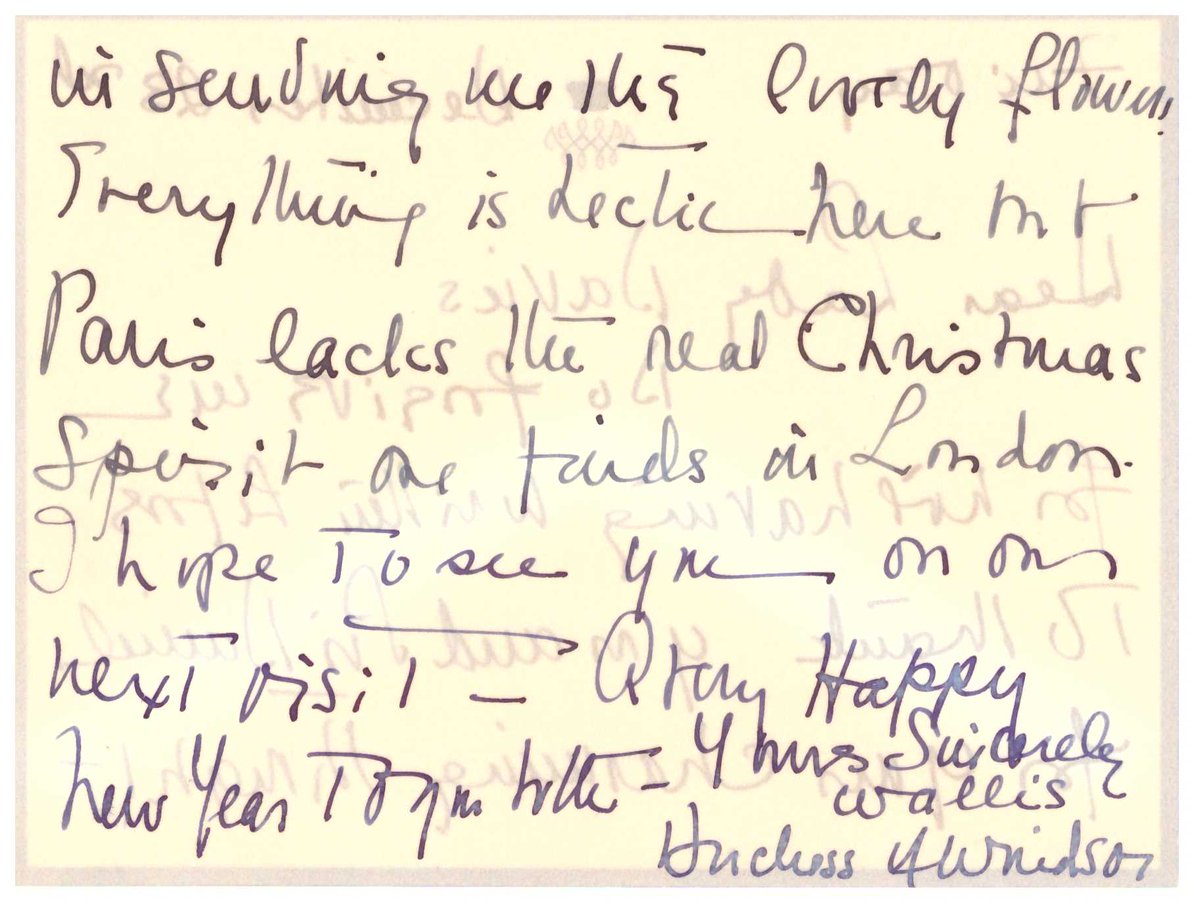 in sending me the lovely flowers.
Everything is hectic here but
Paris lacks the real Christmas
Spirit one finds in London.
I hope to see you on our
next visit – A very Happy
New Year to you both – Yours Sincerely
Wallis
Duchess of Windsor